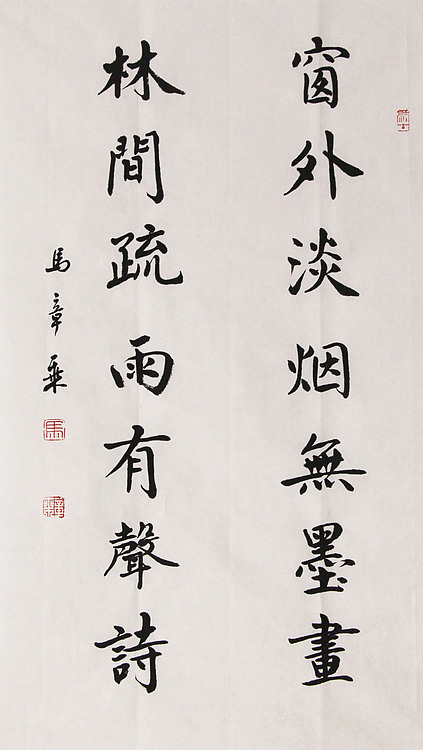 窗外淡烟無墨畫
林間疏雨有聲詩
馬章乘
馬